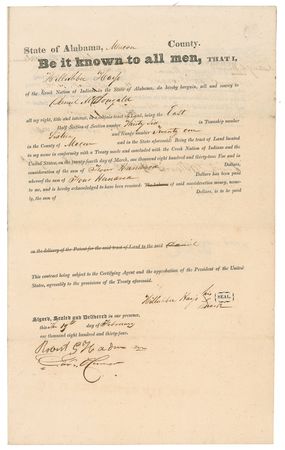 State of Alabama, Macon County.
Be it known to all men, THAT I,
of the Creek Nation of Indians in the State of Alabama, do hereby bargain, sell and convey to
all my right, title and interest, to a certain tract of Land, being the East
Half Section of Section number Thirty Six in Township number
and Range number Twenty one
in the County of Macon and in the State aforesaid. Being the tract of Land located
to my name in conformity with a Treaty made and concluded with the Creek Nation of Indians and the
United States, on the twenty-fourth day of March, one thousand eight hundred and thirty-two: For and in
consideration of the sum of Four Hundred Dollars,
whereof the sum of Four Hundred Dollars has been paid
to me, and is hereby acknowledged to have been received. The balance of said consideration money,
the sum of Dollars, is to be paid
by the said
on the delivery of the Patent for the said tract of Land to the said
This contract being subject to the Certifying Agent and the approbation of the President of the United
States, agreeably to the provisions of the Treaty aforesaid.
SEAL.
Signed, Sealed and Delivered in our presence,
this 19th day of February
one thousand eight hundred and thirty-four.